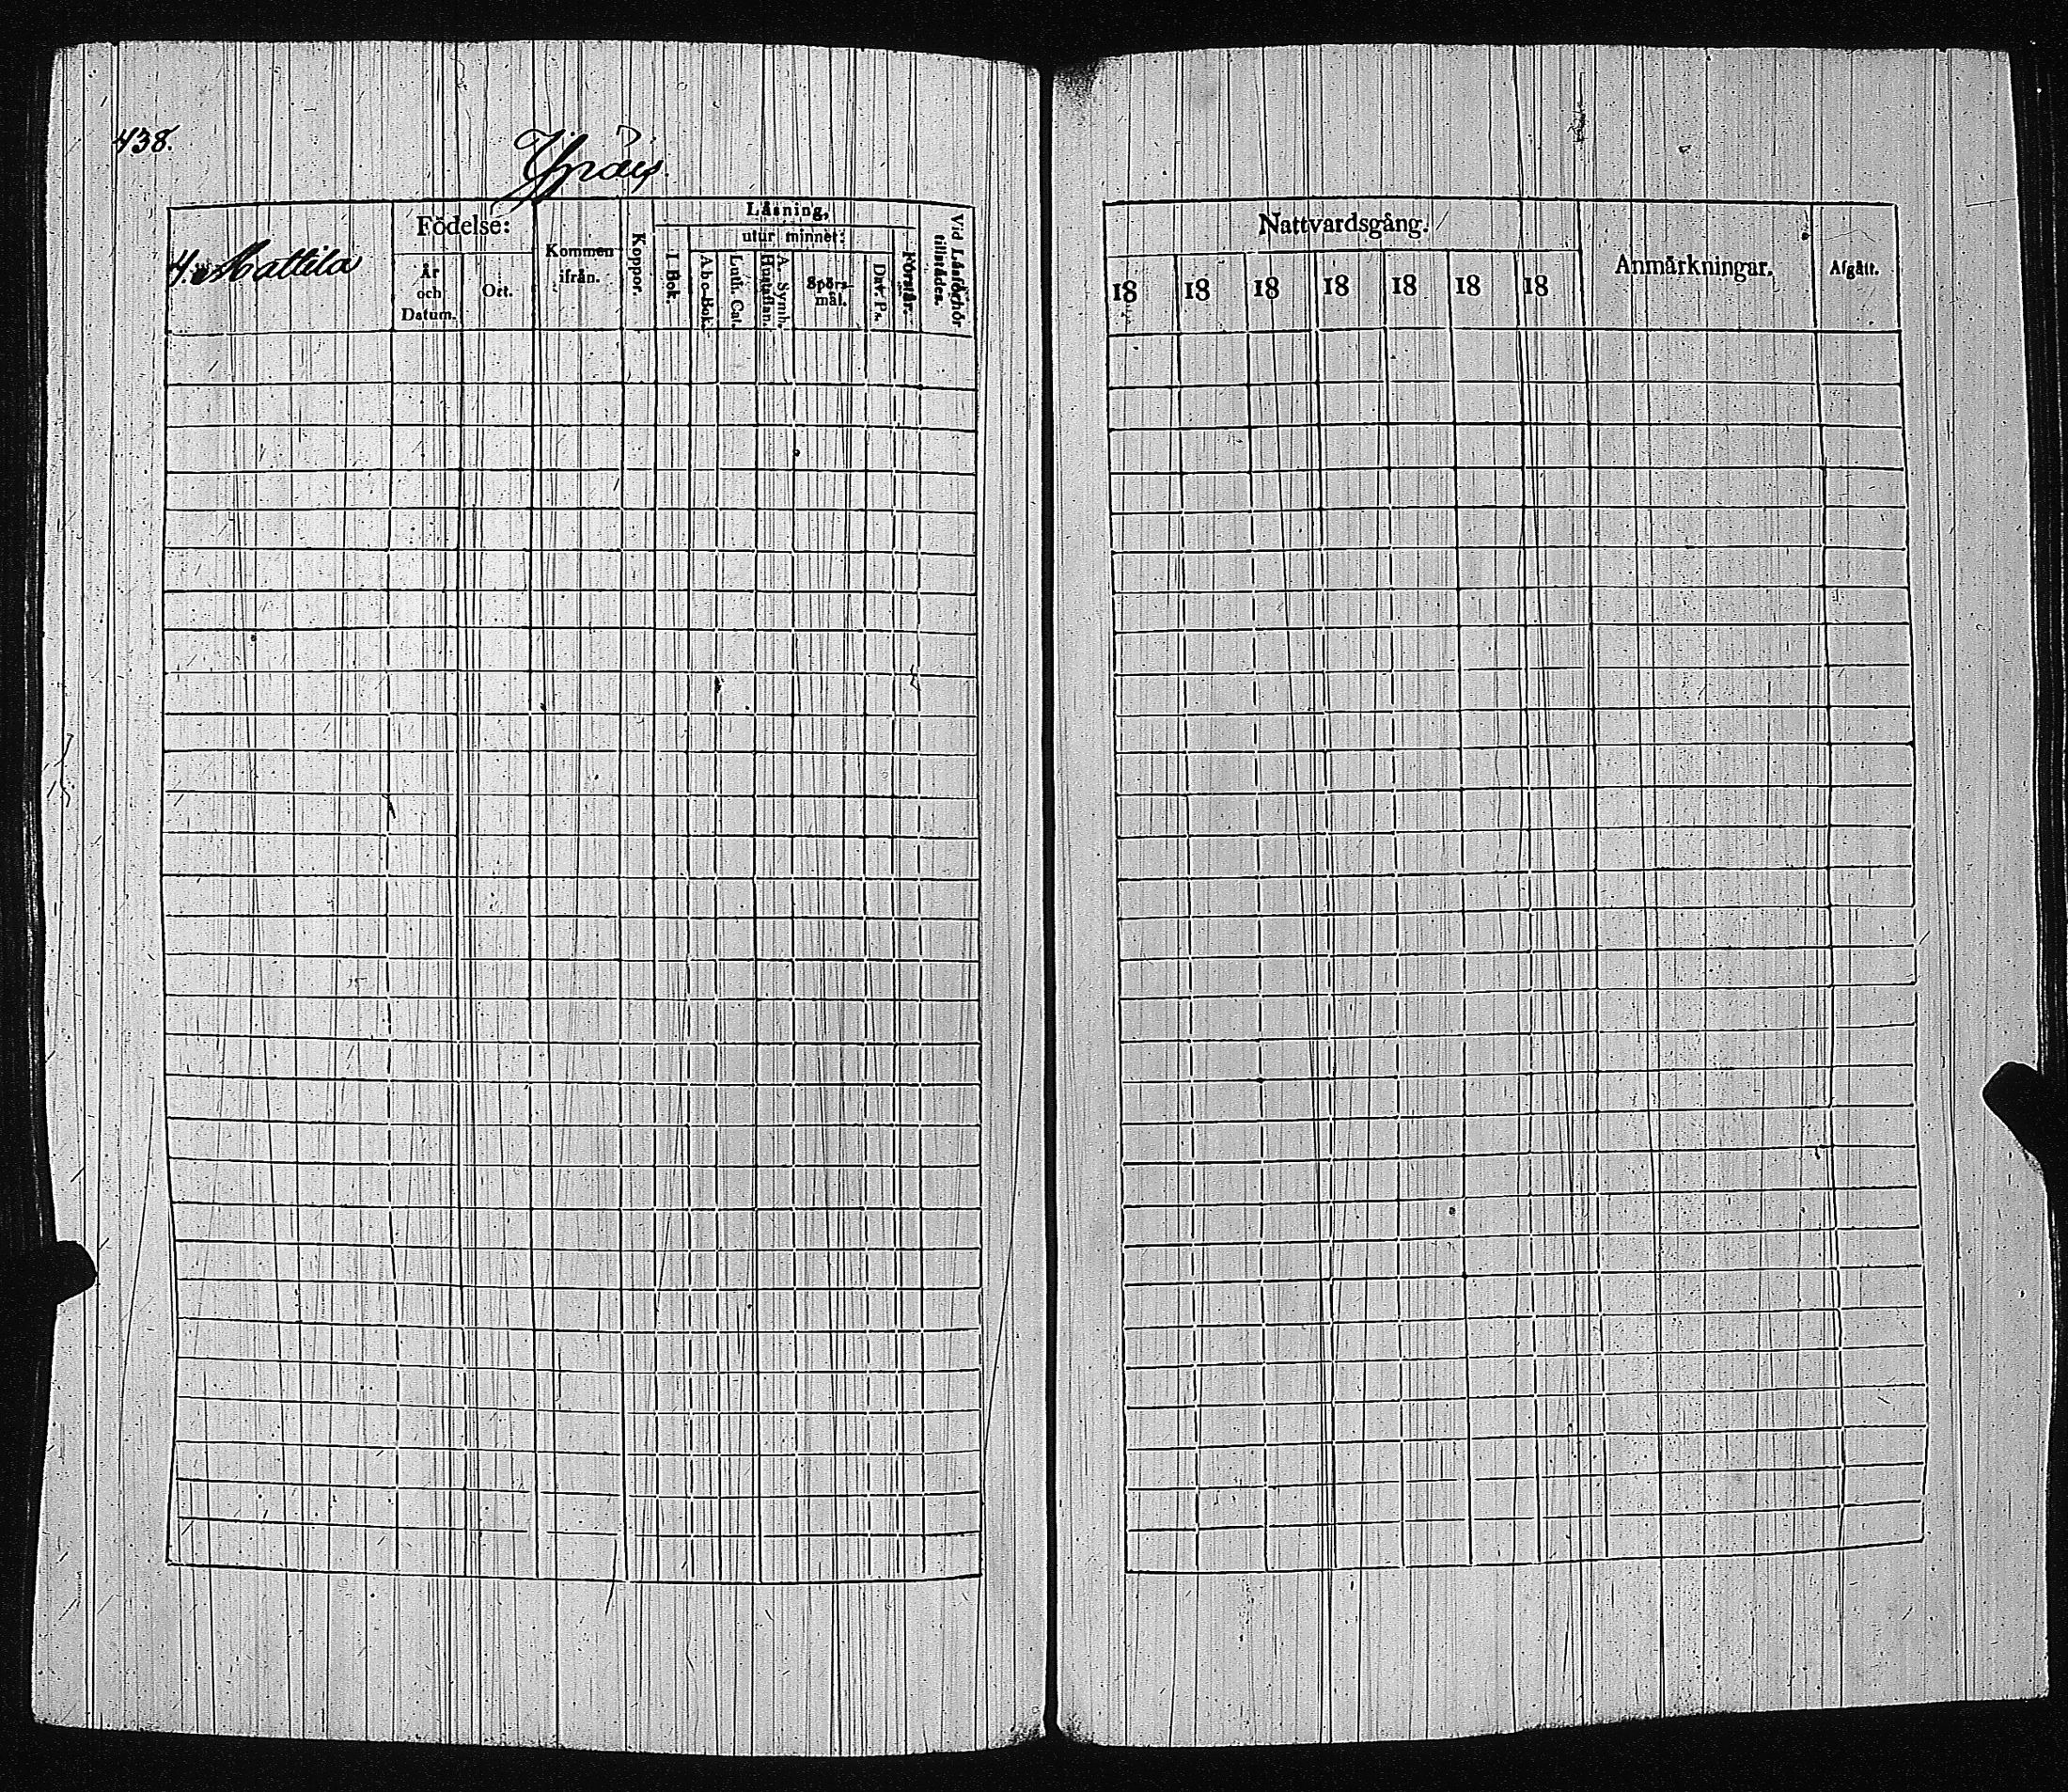 438.
Ypäis
4. Mattila
Födelse:
År
och
Datum.
Ort.
Kommen
ifrån.
Koppor.
Läsning,
utur minnet:
I Bok.
A b c-Bok.
Luth. Cat.
A. Symb.
Hustaflan.
Spörs-
mål.
Dav. Ps.
Förstår.
Vid Läsförhör
tillstädes.
Nattvardsgång.
18 18 18 18 18 18 18
Anmärkningar.
Afgått.